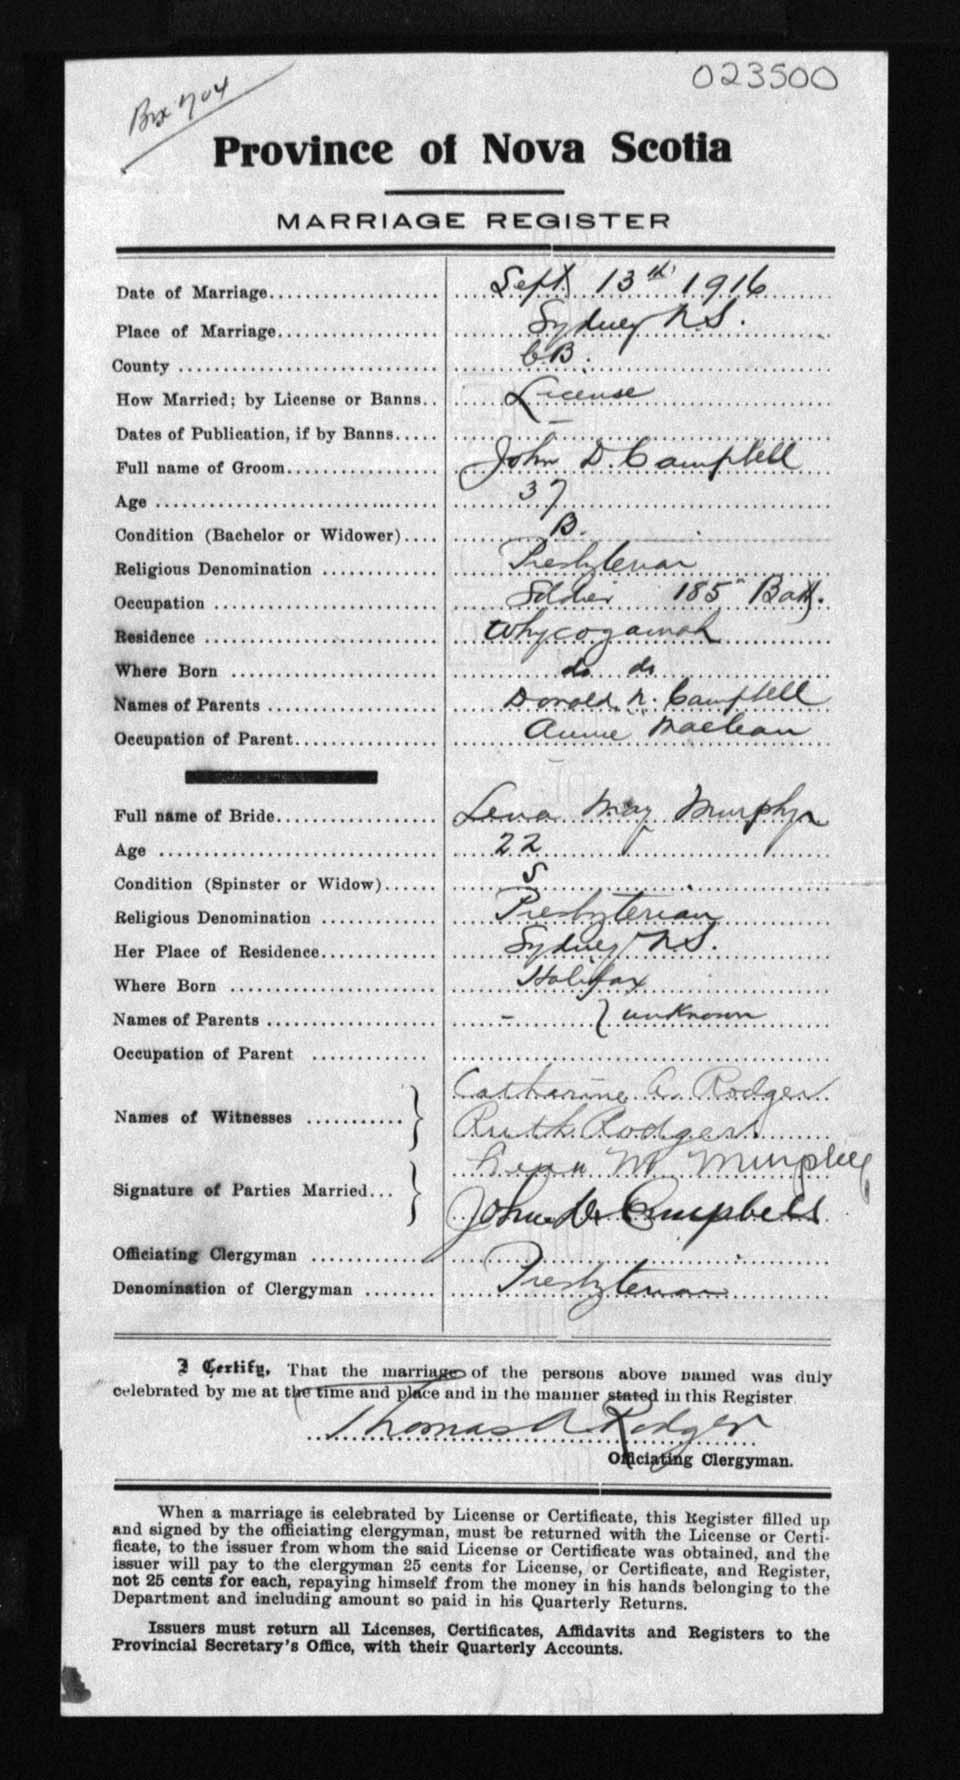 023500
Box 704
Province of Nova Scotia
MARRIAGE REGISTER
Date of Marriage.................... Sept 13th 1916
Place of Marriage................... Sydney N.S.
County ............................. C.B.
How Married; by License or Banns.. License
Dates of Publication, if by Banns..... —
Full name of Groom.................. John D. Campbell
Age ................................ 37
Condition (Bachelor or Widower).... B.
Religious Denomination ............. Presbyterian
Occupation ......................... Soldier 185th Batt.
Residence .......................... Whycogamah
Where Born ......................... do do
Names of Parents ................... Donald N. Campbell
Occupation of Parent................ Annie Maclean
Full name of Bride.................. Lena May Murphy
Age ................................ 22
Condition (Spinster or Widow)...... S
Religious Denomination ............. Presbyterian
Her Place of Residence.............. Sydney N.S.
Where Born ......................... Halifax
Names of Parents ................... - } unknown
Occupation of Parent .............
Catharine A. Rodger
Names of Witnesses ........... }
Ruth Rodger
Lena M Murphy
Signature of Parties Married... }
John D. Campbell
Officiating Clergyman ..............
Denomination of Clergyman ........ Presbyterian
I Certify, That the marriage of the persons above named was duly
celebrated by me at the time and place and in the manner stated in this Register
Thomas A Rodger
Officiating Clergyman.
When a marriage is celebrated by License or Certificate, this Register filled up
and signed by the officiating clergyman, must be returned with the License or Certi-
ficate, to the issuer from whom the said License or Certificate was obtained, and the
issuer will pay to the clergyman 25 cents for License, or Certificate, and Register,
not 25 cents for each, repaying himself from the money in his hands belonging to the
Department and including amount so paid in his Quarterly Returns.
Issuers must return all Licenses, Certificates, Affidavits and Registers to the
Provincial Secretary's Office, with their Quarterly Accounts.